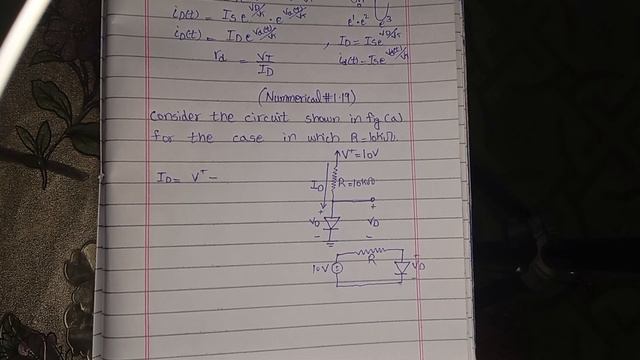 iD(t) = Is e^VD/VT · e^vd(t)/VT
e¹·e²
e³
iD(t) = ID e^vd(t)/VT
, ID = Is e^VD/VT
rd = VT/ID
id(t) = Is e^vd(t)/VT
(Nummerical #1.19)
Consider the circuit shown in fig (a)
for the case in which R=10kΩ.
V⁺=10V
ID = V⁺ –
ID
R=10kΩ
+
+
VD
VD
–
–
R
10V
VD